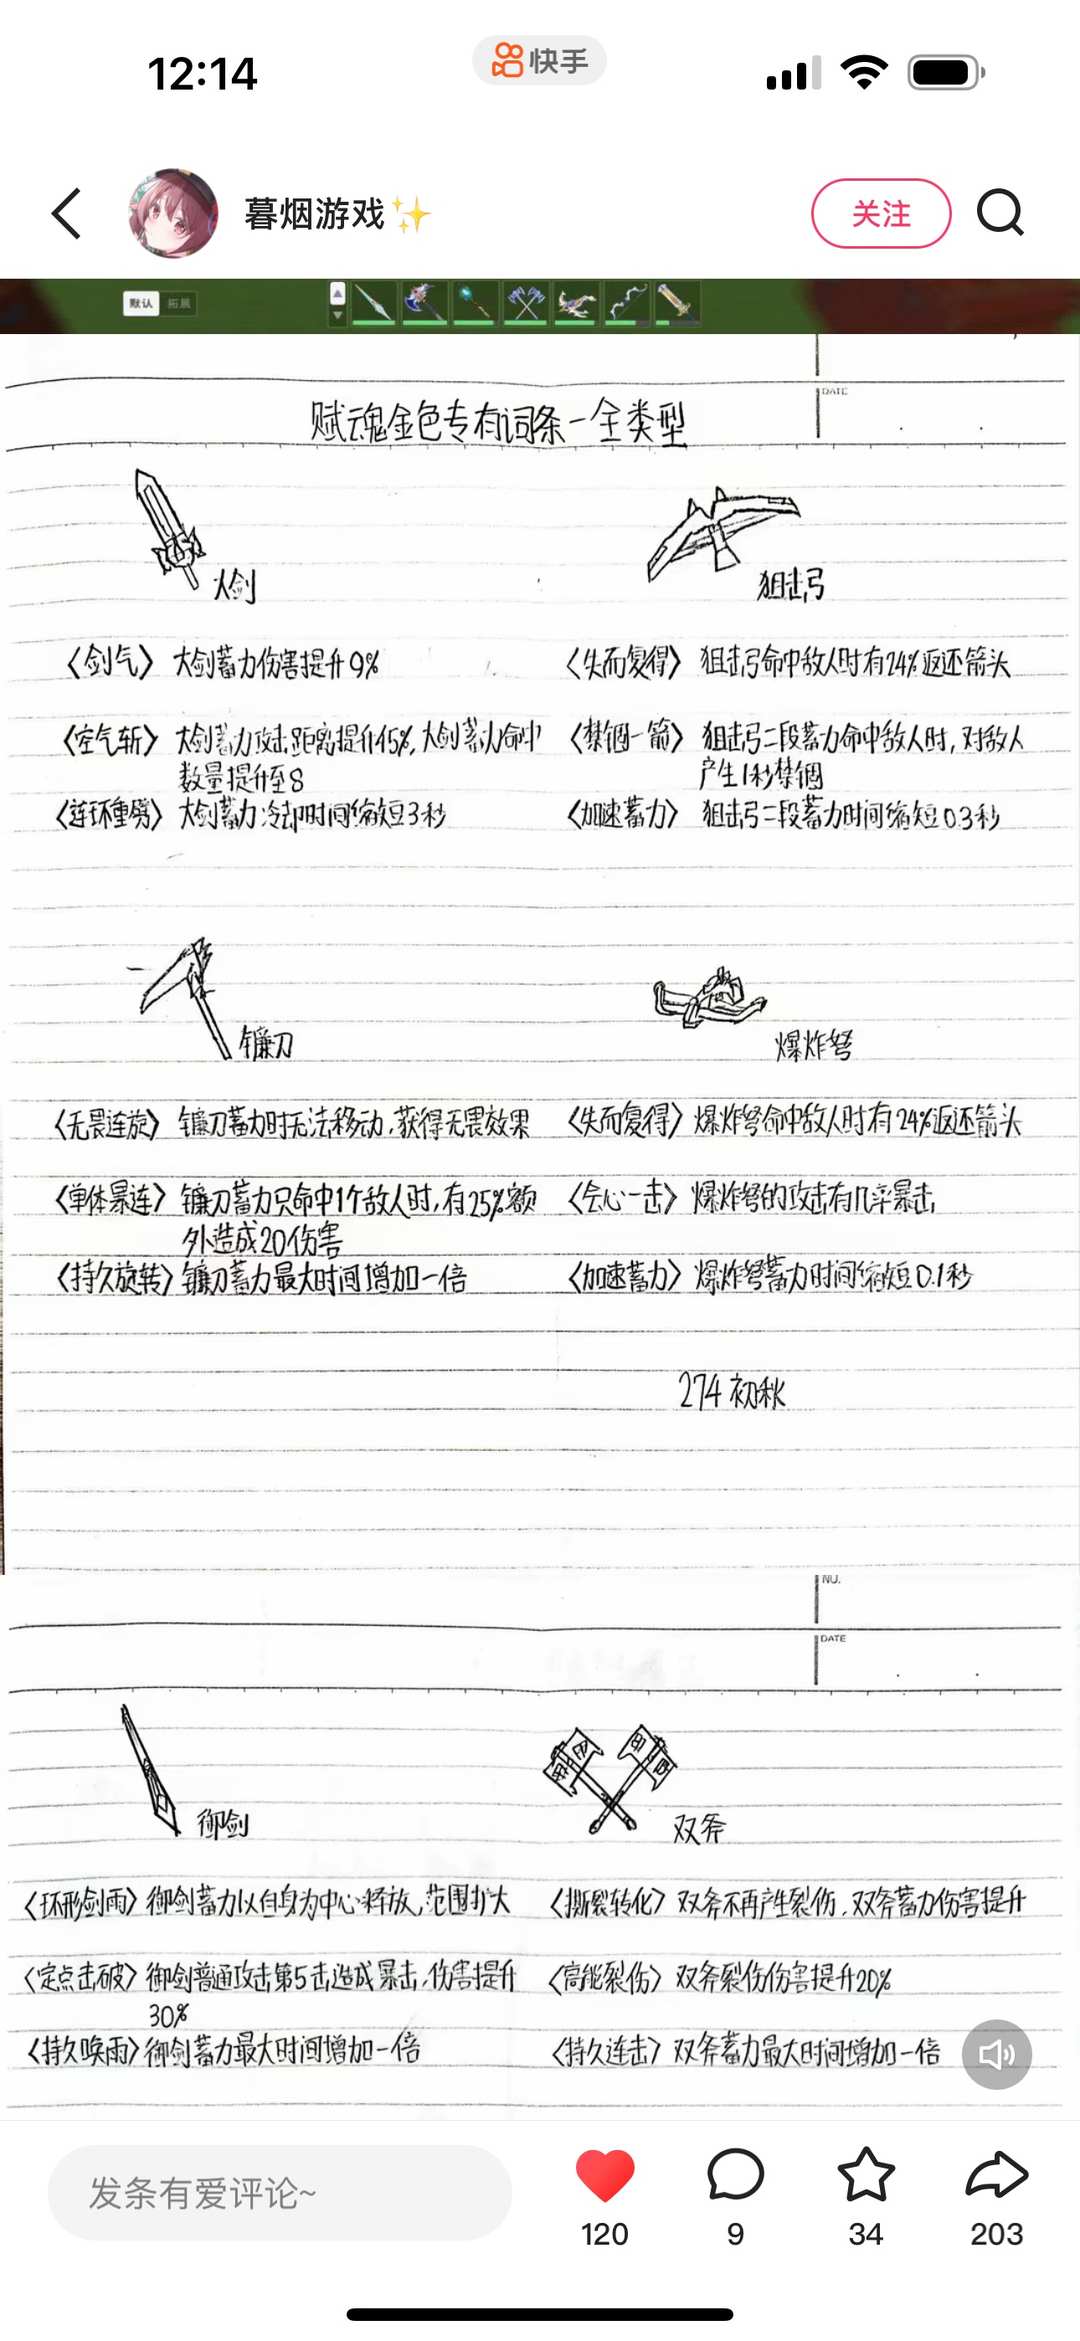 12:14
快手
暮烟游戏✨
关注
默认 拓展
DATE
赋魂金色专有词条一全类型
大剑
狙击弓
〈剑气〉 大剑蓄力伤害提升9%
〈失而复得〉 狙击弓命中敌人时有24%返还箭头
〈空气斩〉 大剑蓄力攻击距离提升45%,大剑蓄力命中
数量提升至8
〈禁锢一箭〉 狙击弓二段蓄力命中敌人时,对敌人
产生1秒禁锢
〈连环重劈〉 大剑蓄力冷却时间缩短3秒
〈加速蓄力〉 狙击弓二段蓄力时间缩短0.3秒
镰刀
爆炸弩
〈无畏连旋〉 镰刀蓄力时无法移动,获得无畏效果
〈失而复得〉 爆炸弩命中敌人时有24%返还箭头
〈单体暴连〉 镰刀蓄力只命中1个敌人时,有25%额
外造成20伤害
〈会心一击〉 爆炸弩的攻击有几率暴击,
〈持久旋转〉 镰刀蓄力最大时间增加一倍
〈加速蓄力〉 爆炸弩蓄力时间缩短0.1秒
274 初秋
NO.
DATE
御剑
双斧
〈环形剑雨〉 御剑蓄力以自身为中心释放,范围扩大
〈撕裂转化〉 双斧不再产生裂伤,双斧蓄力伤害提升
〈定点击破〉 御剑普通攻击第5击造成暴击,伤害提升
30%
〈高能裂伤〉 双斧裂伤伤害提升20%
〈持久唤雨〉 御剑蓄力最大时间增加一倍
〈持久连击〉 双斧蓄力最大时间增加一倍
发条有爱评论~
120
9
34
203